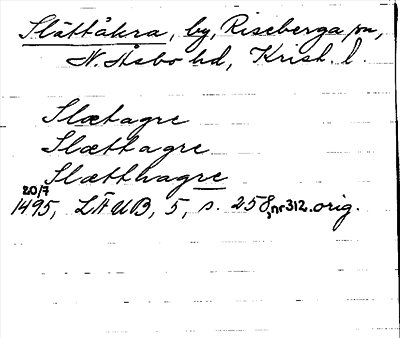 Slättåkra, by, Riseberga sn,
N. Åsbo hd, Krist. l.
Slætagre
Slættagre
Slætthvagre
20/7
1495, LÄUB, 5, s. 258, nr 312. orig.